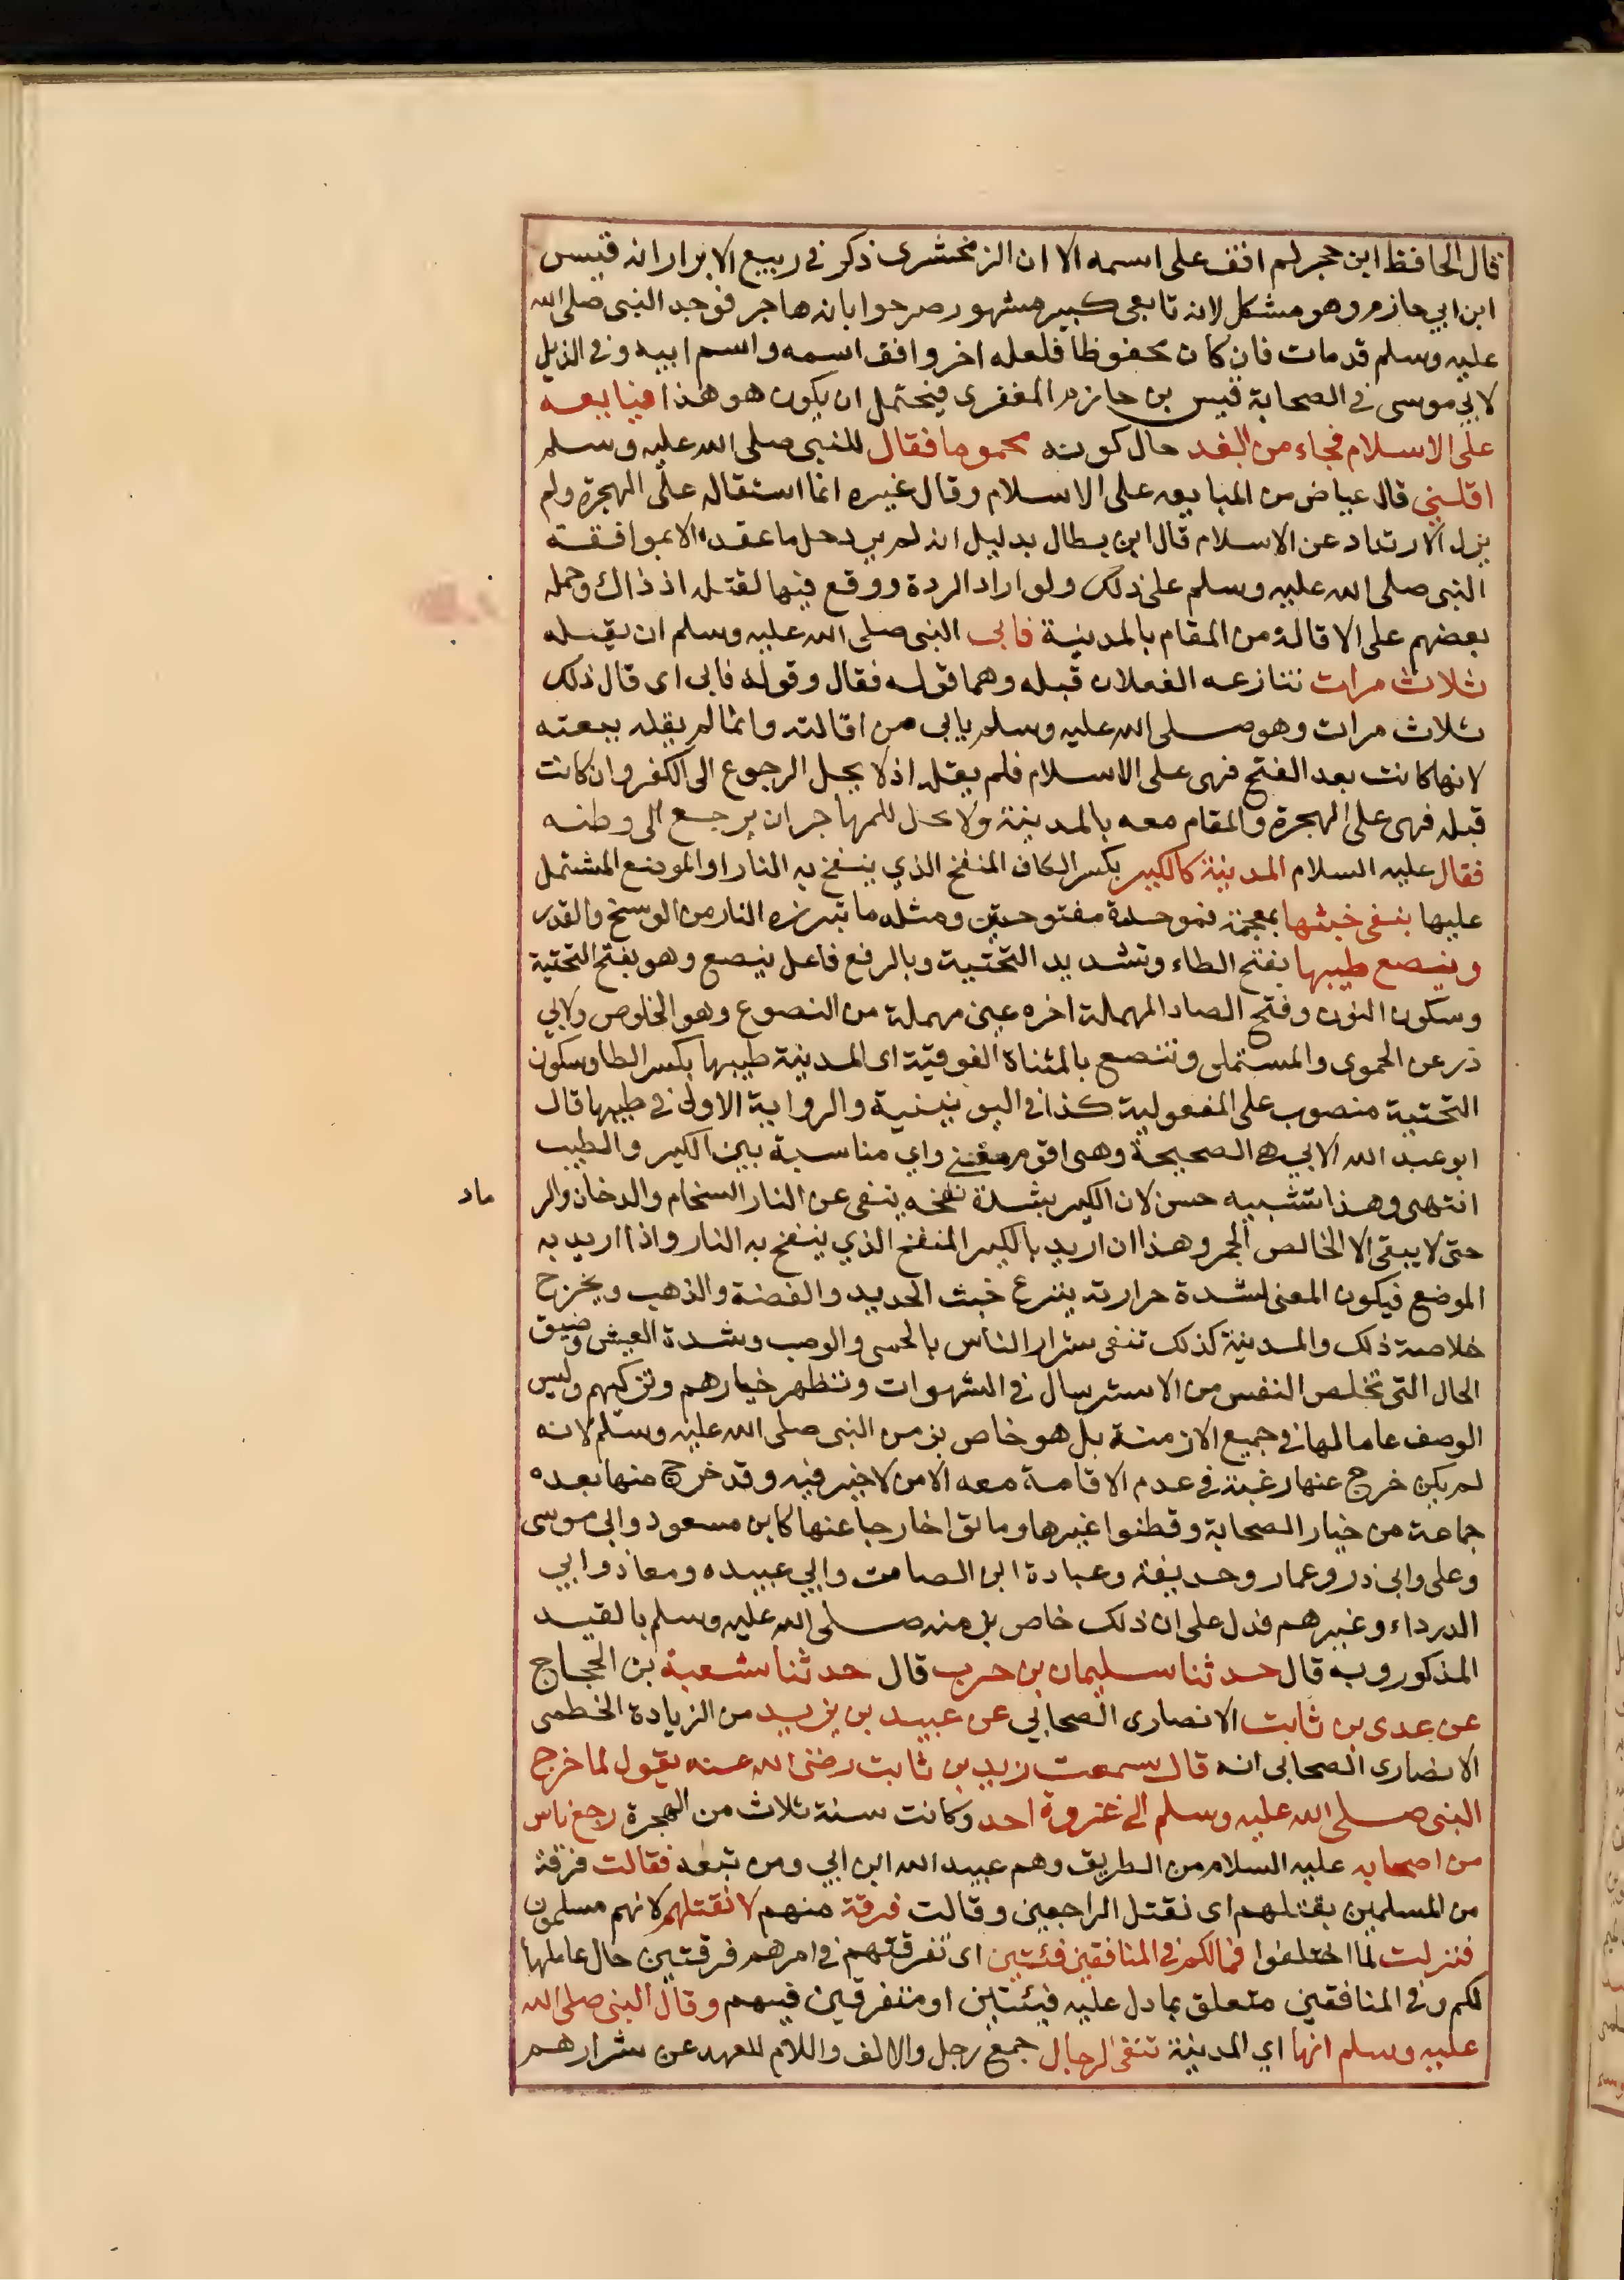 قال الحافظ ابن حجر لم اقف على اسمه الا ان الزمخشرى ذكر في ربيع الابرار انه قيس
ابن ابي حازم وهو مشكل لانه تابعي كبير مشهور صرحوا بانه هاجر فوجد النبى صلى الله
عليه وسلم قد مات فان كان محفوظا فلعله اخر وافق اسمه واسم ابيه وفى الذيل
لابي موسى في الصحابة قيس بن حازم المنقرى فيحتمل ان يكون هو هذا فبايعه
على الاسلام فجاء من الغد حال كونه محموما فقال للنبى صلى الله عليه وسلم
اقلنى قال عياض من المبايعه على الاسلام وقال غيره انما استقاله على الهجرة ولم
يرد الارتداد عن الاسلام قال ابن بطال بدليل انه لم يرد حل ما عقده الا بموافقة
النبى صلى الله عليه وسلم على ذلك ولو اراد الردة ووقع فيها لقتله اذ ذاك وحمله
بعضهم على الاقالة من المقام بالمدينة فابى النبى صلى الله عليه وسلم ان يقيله
ثلاث مرات تنازعه الفعلان قبله وهما قوله فقال وقوله فابى اى قال ذلك
ثلاث مرات وهو صلى الله عليه وسلم يابى من اقالته وانما لم يقله بيعته
لانها كانت بعد الفتح فهى على الاسلام فلم يقله اذ لا يحل الرجوع الى الكفر وان كانت
قبله فهى على الهجرة والمقام معه بالمدينة ولا يحل للمهاجر ان يرجع الى وطنه
فقال عليه السلام المدينة كالكير بكسر الكاف المنفخ الذي ينفخ به النار او الموضع المشتمل
عليها ينفى خبثها بمعجمة فموحدة مفتوحتين ومثلثه ما تبرزه النار من الوسخ والقذر
وينصع طيبها بفتح الطاء وتشديد التحتية وبالرفع فاعل ينصع وهو بفتح التحتية
وسكون النون وفتح الصاد المهملة اخره عين مهملة من النصوع وهو الخلوص ولابي
ذر عن الحموى والمستملى وتنصع بالمثناة الفوقية اى المدينة طيبها بكسر الطا وسكون
التحتية منصوب على المفعولية كذا في اليونينية والرواية الاولى في طيبها قال
ابو عبد الله الابي هى الصحيحة وهى اقوم معنى واي مناسبة بين الكير والطيب
انتهى وهذا تشبيه حسن لان الكير بشدة نفخه ينفى عن النار السخام والدخان والر
ماد
حتى لا يبقى الا الخالص الجمر وهذا ان اريد بالكير المنفخ الذي ينفخ به النار واذا اريد به
الموضع فيكون المعنى لشدة حرارته ينزع خبث الحديد والفضة والذهب ويخرج
خلاصة ذلك والمدينة كذلك تنفى شرار الناس بالحمى والوصب وشدة العيش وضيق
الحال التى تخلص النفس من الاسترسال في الشهوات وتطهر خيارهم وتزكيهم وليس
الوصف عاما لها في جميع الازمنة بل هو خاص بزمن النبى صلى الله عليه وسلم لانه
لم يكن خرج عنها رغبة في عدم الاقامة معه الا من لا خير فيه وقد خرج منها بعده
جماعة من خيار الصحابة وقطنوا غيرها وماتوا خارجا عنها كابن مسعود وابي موسى
وعلى وابى ذر وعمار وحذيفة وعبادة ابن الصامت وابي عبيده ومعاذ وابي
الدرداء وغيرهم فدل على ان ذلك خاص بزمنه صلى الله عليه وسلم بالقيد
المذكور وبه قال حدثنا سليمان بن حرب قال حدثنا شعبة بن الحجاج
عن عدى بن ثابت الانصارى الصحابي عن عبيد بن يزيد من الزيادة الخطمى
الانصارى الصحابى انه قال سمعت زيد بن ثابت رضى الله عنه يقول لما خرج
النبى صلى الله عليه وسلم الى غزوة احد وكانت سنة ثلاث من الهجرة رجع ناس
من اصحابه عليه السلام من الطريق وهم عبيد الله ابن ابي ومن تبعه فقالت فرقة
من المسلمين بقتلهم اى نقتل الراجعين وقالت فرقة منهم لا نقتلهم لانهم مسلمون
فنزلت لما اختلفوا فما لكم في المنافقين فئتين اى تفرقتهم في امرهم فرقتين حال عاملها
لكم وفى المنافقين متعلق بما دل عليه فيئتين او متفرقين فيهم وقال النبى صلى الله
عليه وسلم انها اي المدينة تنفى الرجال جمع رجل والالف واللام للعهد عن شرارهم